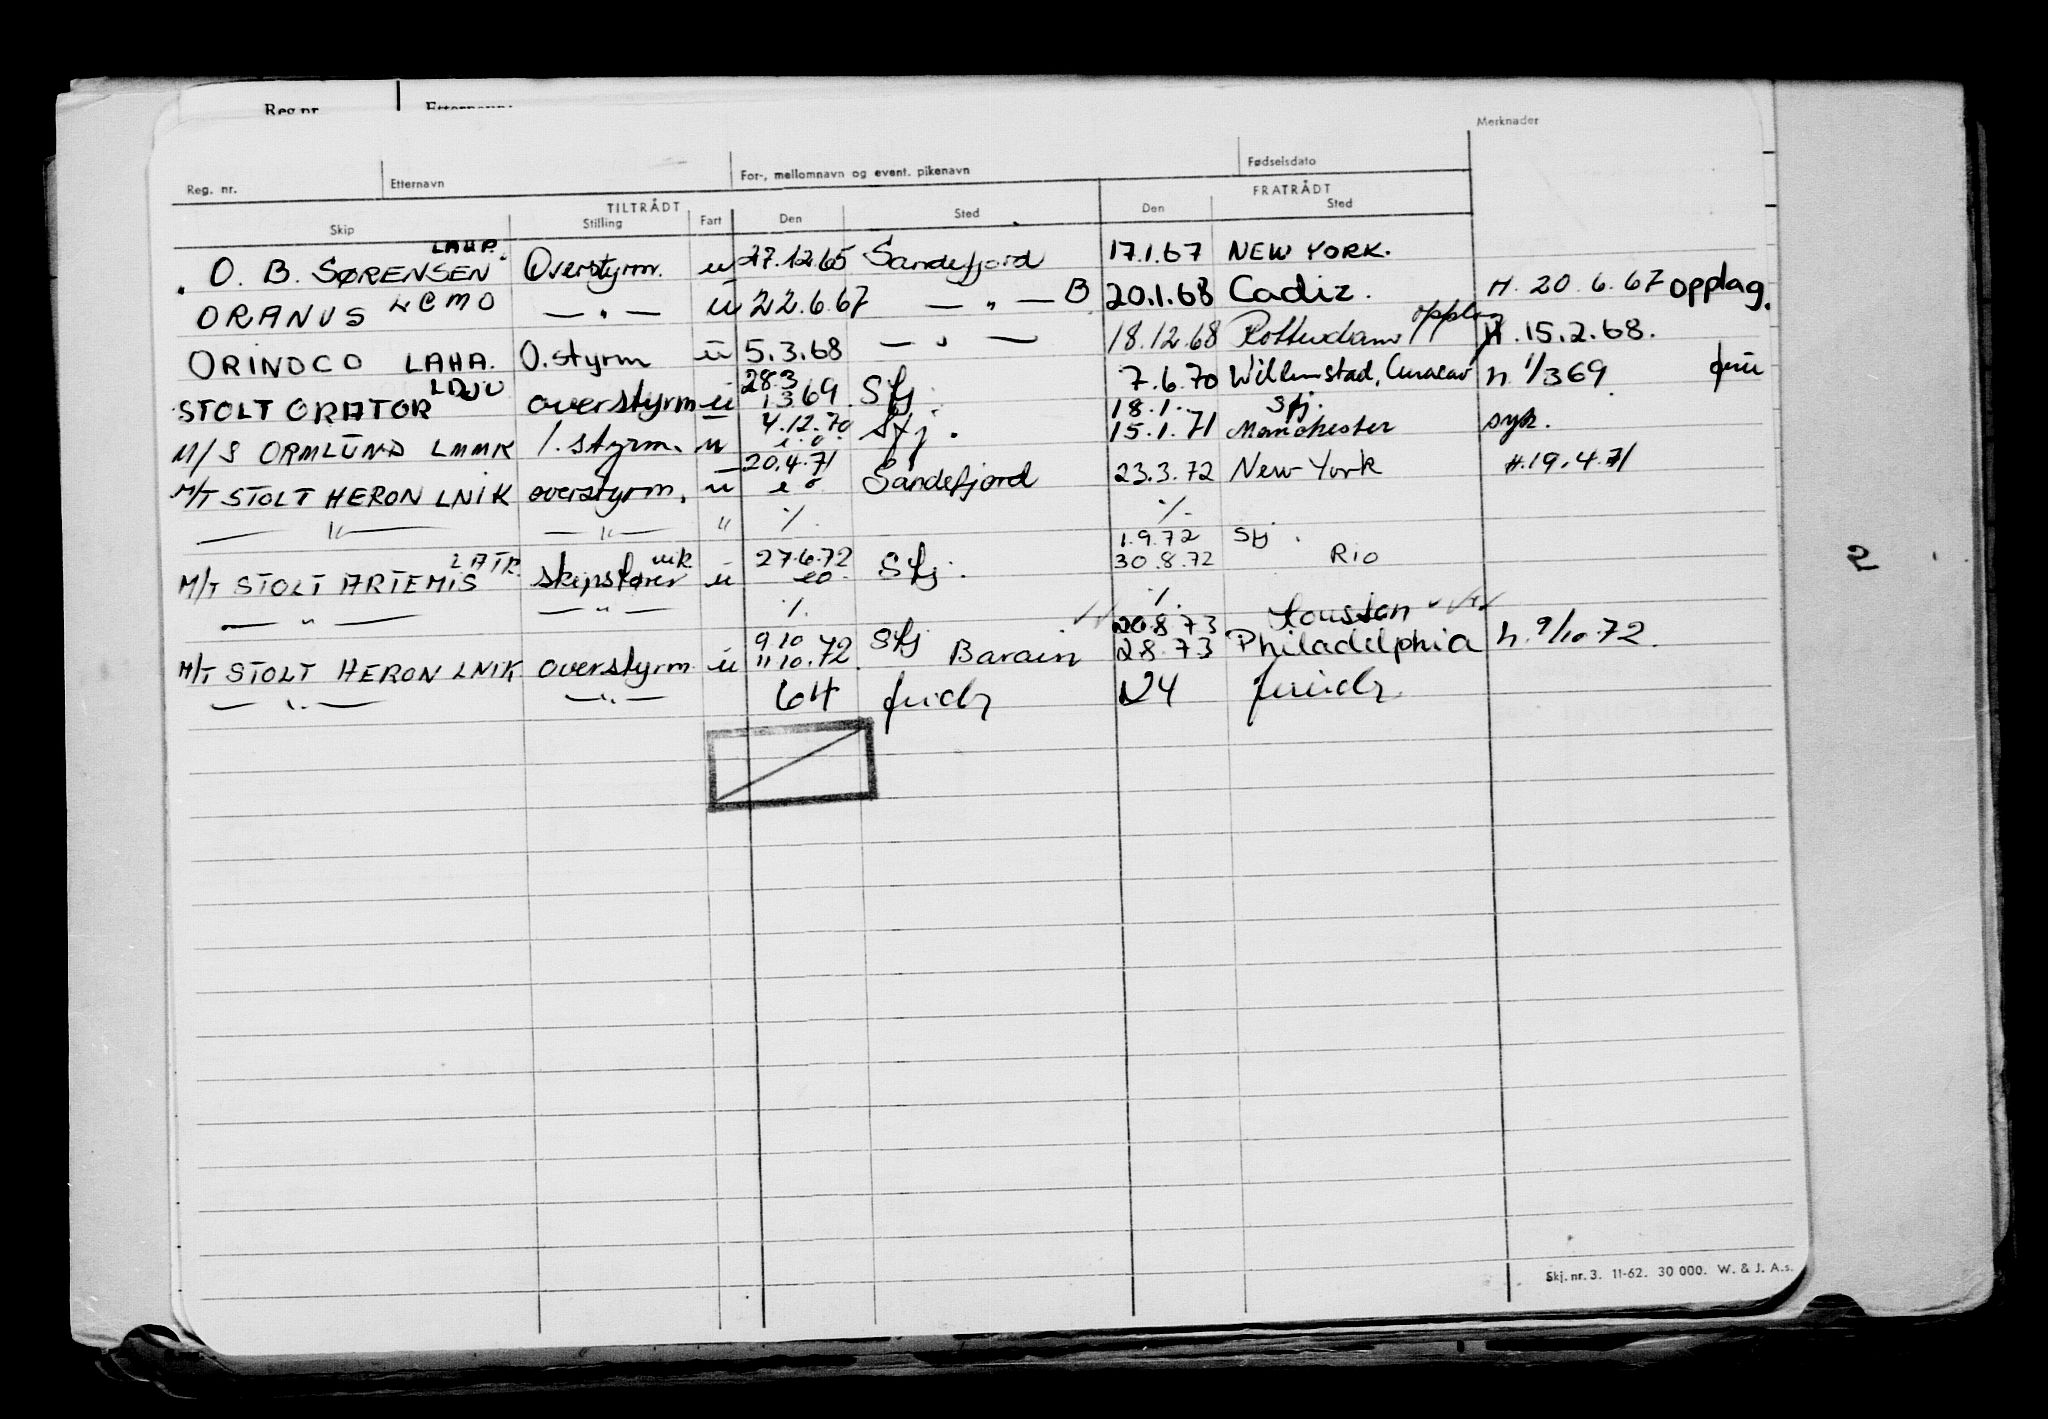 Merknader
Reg. nr. Etternavn For-, mellomnavn og event. pikenavn Fødselsdato
TILTRÅDT FRATRÅDT
Skip Stilling Fart Den Sted Den Sted
O. B. SØRENSEN LAHP. Overstyrm. ū 27.12.65 Sandefjord 17.1.67 NEW YORK.
ORANUS LCMO — " — ū 22.6.67 — " — B 20.1.68 Cadiz. H. 20.6.67 opplag.
ORINOCO LAHA. O.styrm ū 5.3.68 — " — 18.12.68 Rotterdam opplag H. 15.2.68.
STOLT ORATOR LDJU overstyrm ū 28.3 1369 Sfj. 7.6.70 Willemstad, Curacao h. 1/369
M/S ORMLUND LMMK 1. styrm. ū 4.12.70 Sfj. 18.1. Sfj. 15.1.71 Manchester syk.
M/T STOLT HERON LNIK overstyrm. ū 20.4.71 Sandefjord 23.3.72 New York H.19.4.71
— " — — " — " %. %.
M/T STOLT ARTEMIS LATR skipsfører vik ū 27.6.72 Sfj. 1.9.72 Sfj. 30.8.72 RIO
— " — — " — %. %.
M/T STOLT HERON LNIK overstyrm ū 9.10 11.10.72 Sfj Barain 20.8.73 Houston 28.73 Philadelphia h. 9/10.72.
— " — — " — 64 124
2
Skj. nr. 3. 11-62. 30 000. W. & J. A.s.